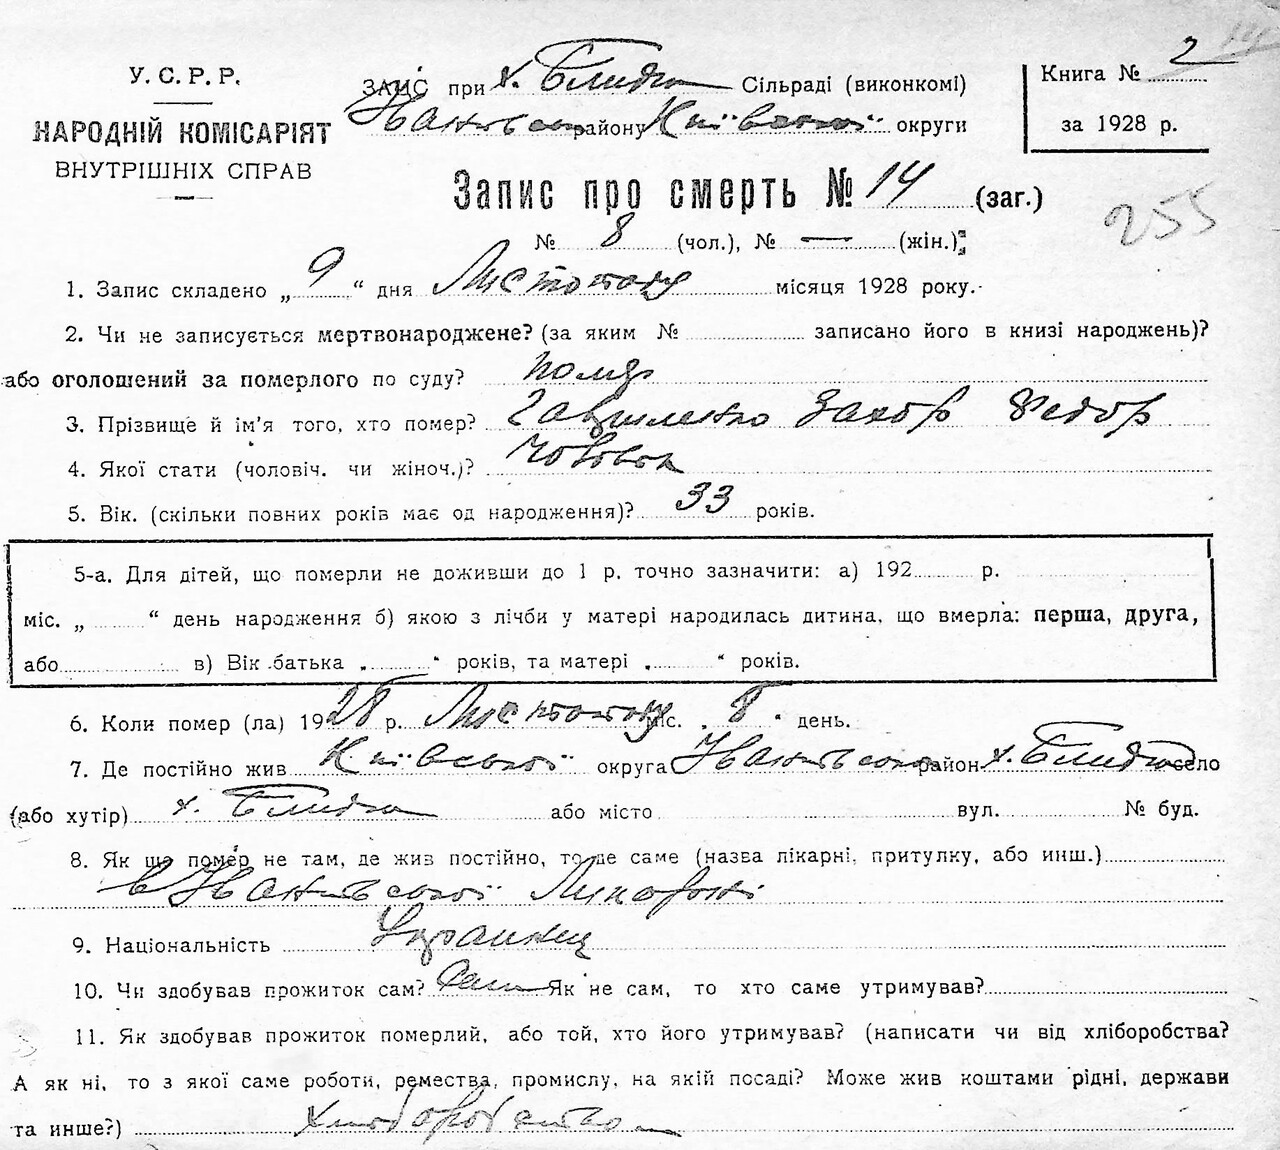 У. С. Р. Р.
НАРОДНІЙ КОМІСАРІЯТ
ВНУТРІШНІХ СПРАВ
ЗАПИС при х. Блидча Сільраді (виконкомі)
Іванківськ району Київської округи
Книга № 2
за 1928 р.
Запис про смерть № 14 (заг.)
№ 8 (чол.), № — (жін.);
255
1. Запис складено „ 9 “ дня Листопаду місяця 1928 року.
2. Чи не записується мертвонароджене? (за яким № записано його в книзі народжень)?
або оголошений за померлого по суду? помер
3. Прізвище й ім'я того, хто помер? Гавриленко Захор Федор
4. Якої стати (чоловіч. чи жіноч.)? Чоловік
5. Вік. (скільки повних років має од народження)? 33 років.
5-а. Для дітей, що померли не доживши до 1 р. точно зазначити: а) 192 р.
міс. „ “ день народження б) якою з лічби у матері народилась дитина, що вмерла: перша, друга,
або в) Вік батька „ “ років, та матері „ “ років.
6. Коли помер (ла) 1928 р. Листопаду міс. „ 8 “ день.
7. Де постійно жив Київської округа Іванківського район х. Блидча село
(або хутір) х. Блидча або місто вул. № буд.
8. Як що помер не там, де жив постійно, то де саме (назва лікарні, притулку, або инш.)
в Іванківської Ликарні
9. Національність Украинец
10. Чи здобував прожиток сам? Сам Як не сам, то хто саме утримував?
11. Як здобував прожиток померлий, або той, хто його утримував? (написати чи від хліборобства?
А як ні, то з якої саме роботи, ремества, промислу, на якій посаді? Може жив коштами рідні, держави
та инше?) хліборобство